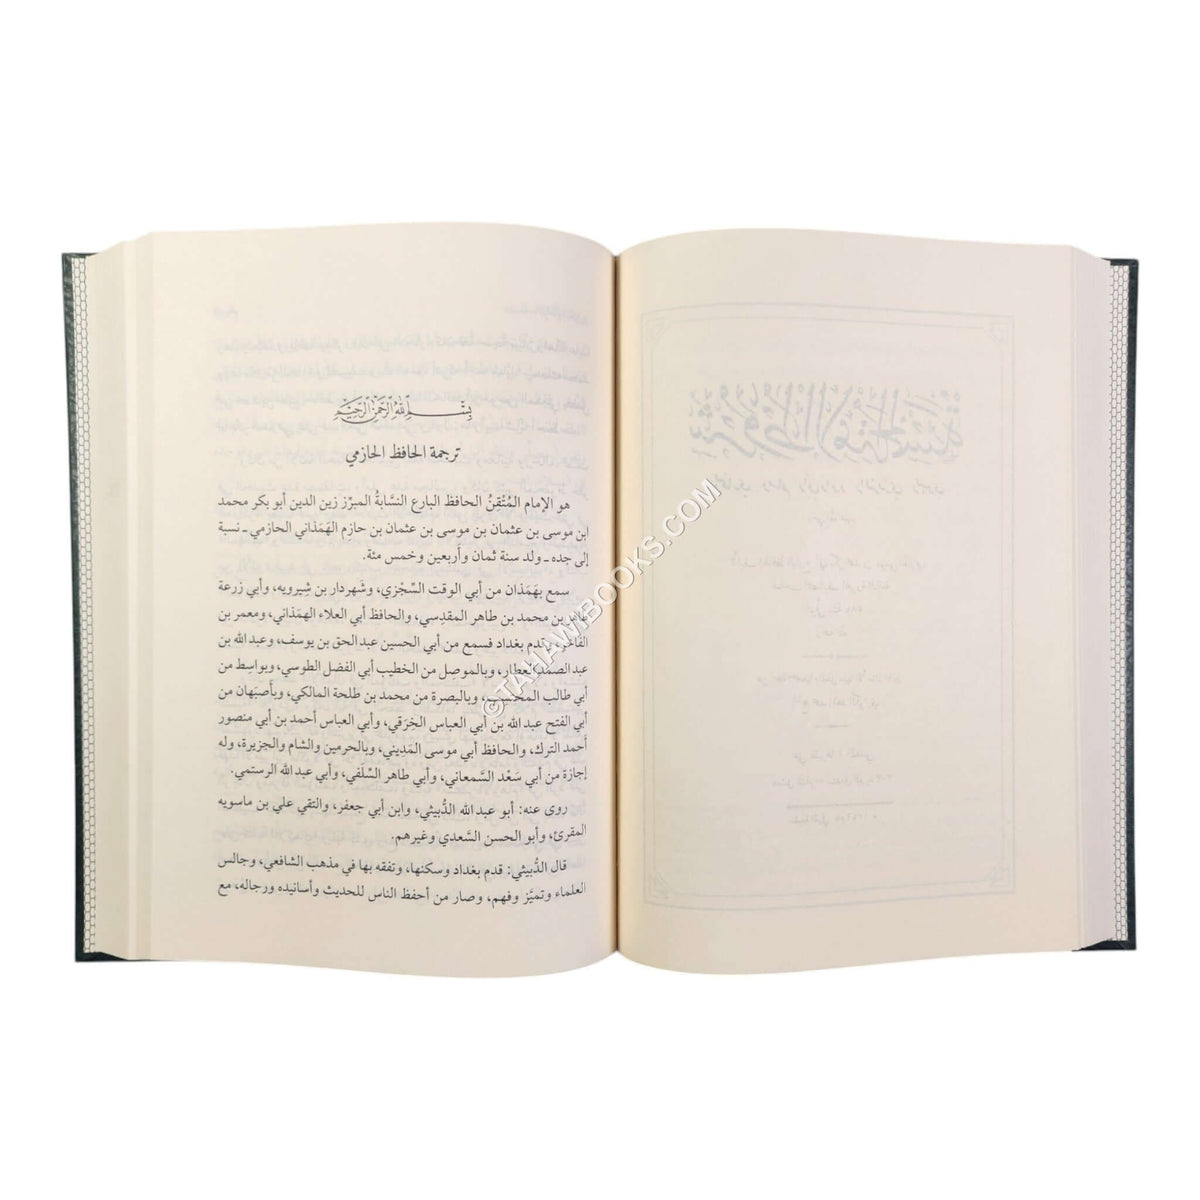 بسم الله الرحمن الرحيم
ترجمة الحافظ الحازمي
هو الإمام المُتْقنُ الحافظ البارع النسَّابةُ المبرّز زين الدين أبو بكر محمد
ابن موسى بن عثمان بن موسى بن عثمان بن حازم الهَمَذاني الحازمي ـ نسبة
إلى جده ـ ولد سنة ثمان وأربعين وخمس مئة.
سمع بهَمَذان من أبي الوقت السِّجْزي، وشَهردار بن شِيرويه، وأبي زرعة
طاهر بن محمد بن طاهر المقدِسي، والحافظ أبي العلاء الهمَذاني، ومعمر بن
الفاخر، وقدم بغداد فسمع من أبي الحسين عبد الحق بن يوسف، وعبد الله بن
عبد الصمد العطار، وبالموصل من الخطيب أبي الفضل الطوسي، وبواسِط من
أبي طالب المحتسب، وبالبصرة من محمد بن طلحة المالكي، وبأَصبَهان من
أبي الفتح عبد الله بن أبي العباس الخِرَقي، وأبي العباس أحمد بن أبي منصور
أحمد الترك، والحافظ أبي موسى المَدِيني، وبالحرمين والشام والجزيرة، وله
إجازة من أبي سَعْد السَّمعاني، وأبي طاهر السِّلَفي، وأبي عبد الله الرستمي.
روى عنه: أبو عبد الله الدُّبيثي، وابن أبي جعفر، والتقي علي بن ماسويه
المقرئ، وأبو الحسن السَّعدي وغيرهم.
قال الدُّبيثي: قدم بغداد وسكنها، وتفقه بها في مذهب الشافعي، وجالس
العلماء وتميَّز وفهم، وصار من أحفظ الناس للحديث وأسانيده ورجاله، مع
©TAHAWIBOOKS.COM